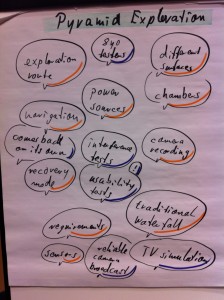 Pyramid Exploration
exploration
route
fasteners
different
surfaces
power
sources
chambers
navigation
comes back
on its own
interference
tests
camera
recording
recovery
mode
!
usability
tests
traditional
waterfall
requirements
sensors
reliable
camera
broadcast
TV simulation